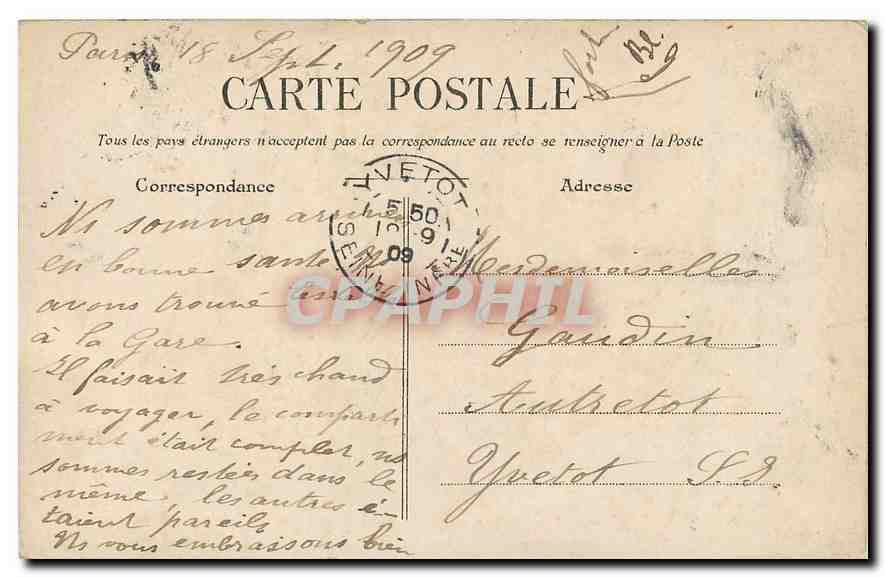 Paris 18 Sept. 1909
CARTE POSTALE
Tous les pays étrangers n'acceptent pas la correspondance au recto se renseigner à la Poste
Correspondance
Ns sommes arrivées
en bonne santé Ns
avons trouvé
à la Gare.
Il faisait très chaud
à voyager, le comparti
ment était complet, ns
sommes restées dans le
même, les autres é-
taient pareils
Ns vous embrassons bien
YVETOT
5 50
9
09
SEINE INFRE
CPAPHIL
Adresse
Mesdemoiselles
Gaudin
Autretot
Yvetot S. I.